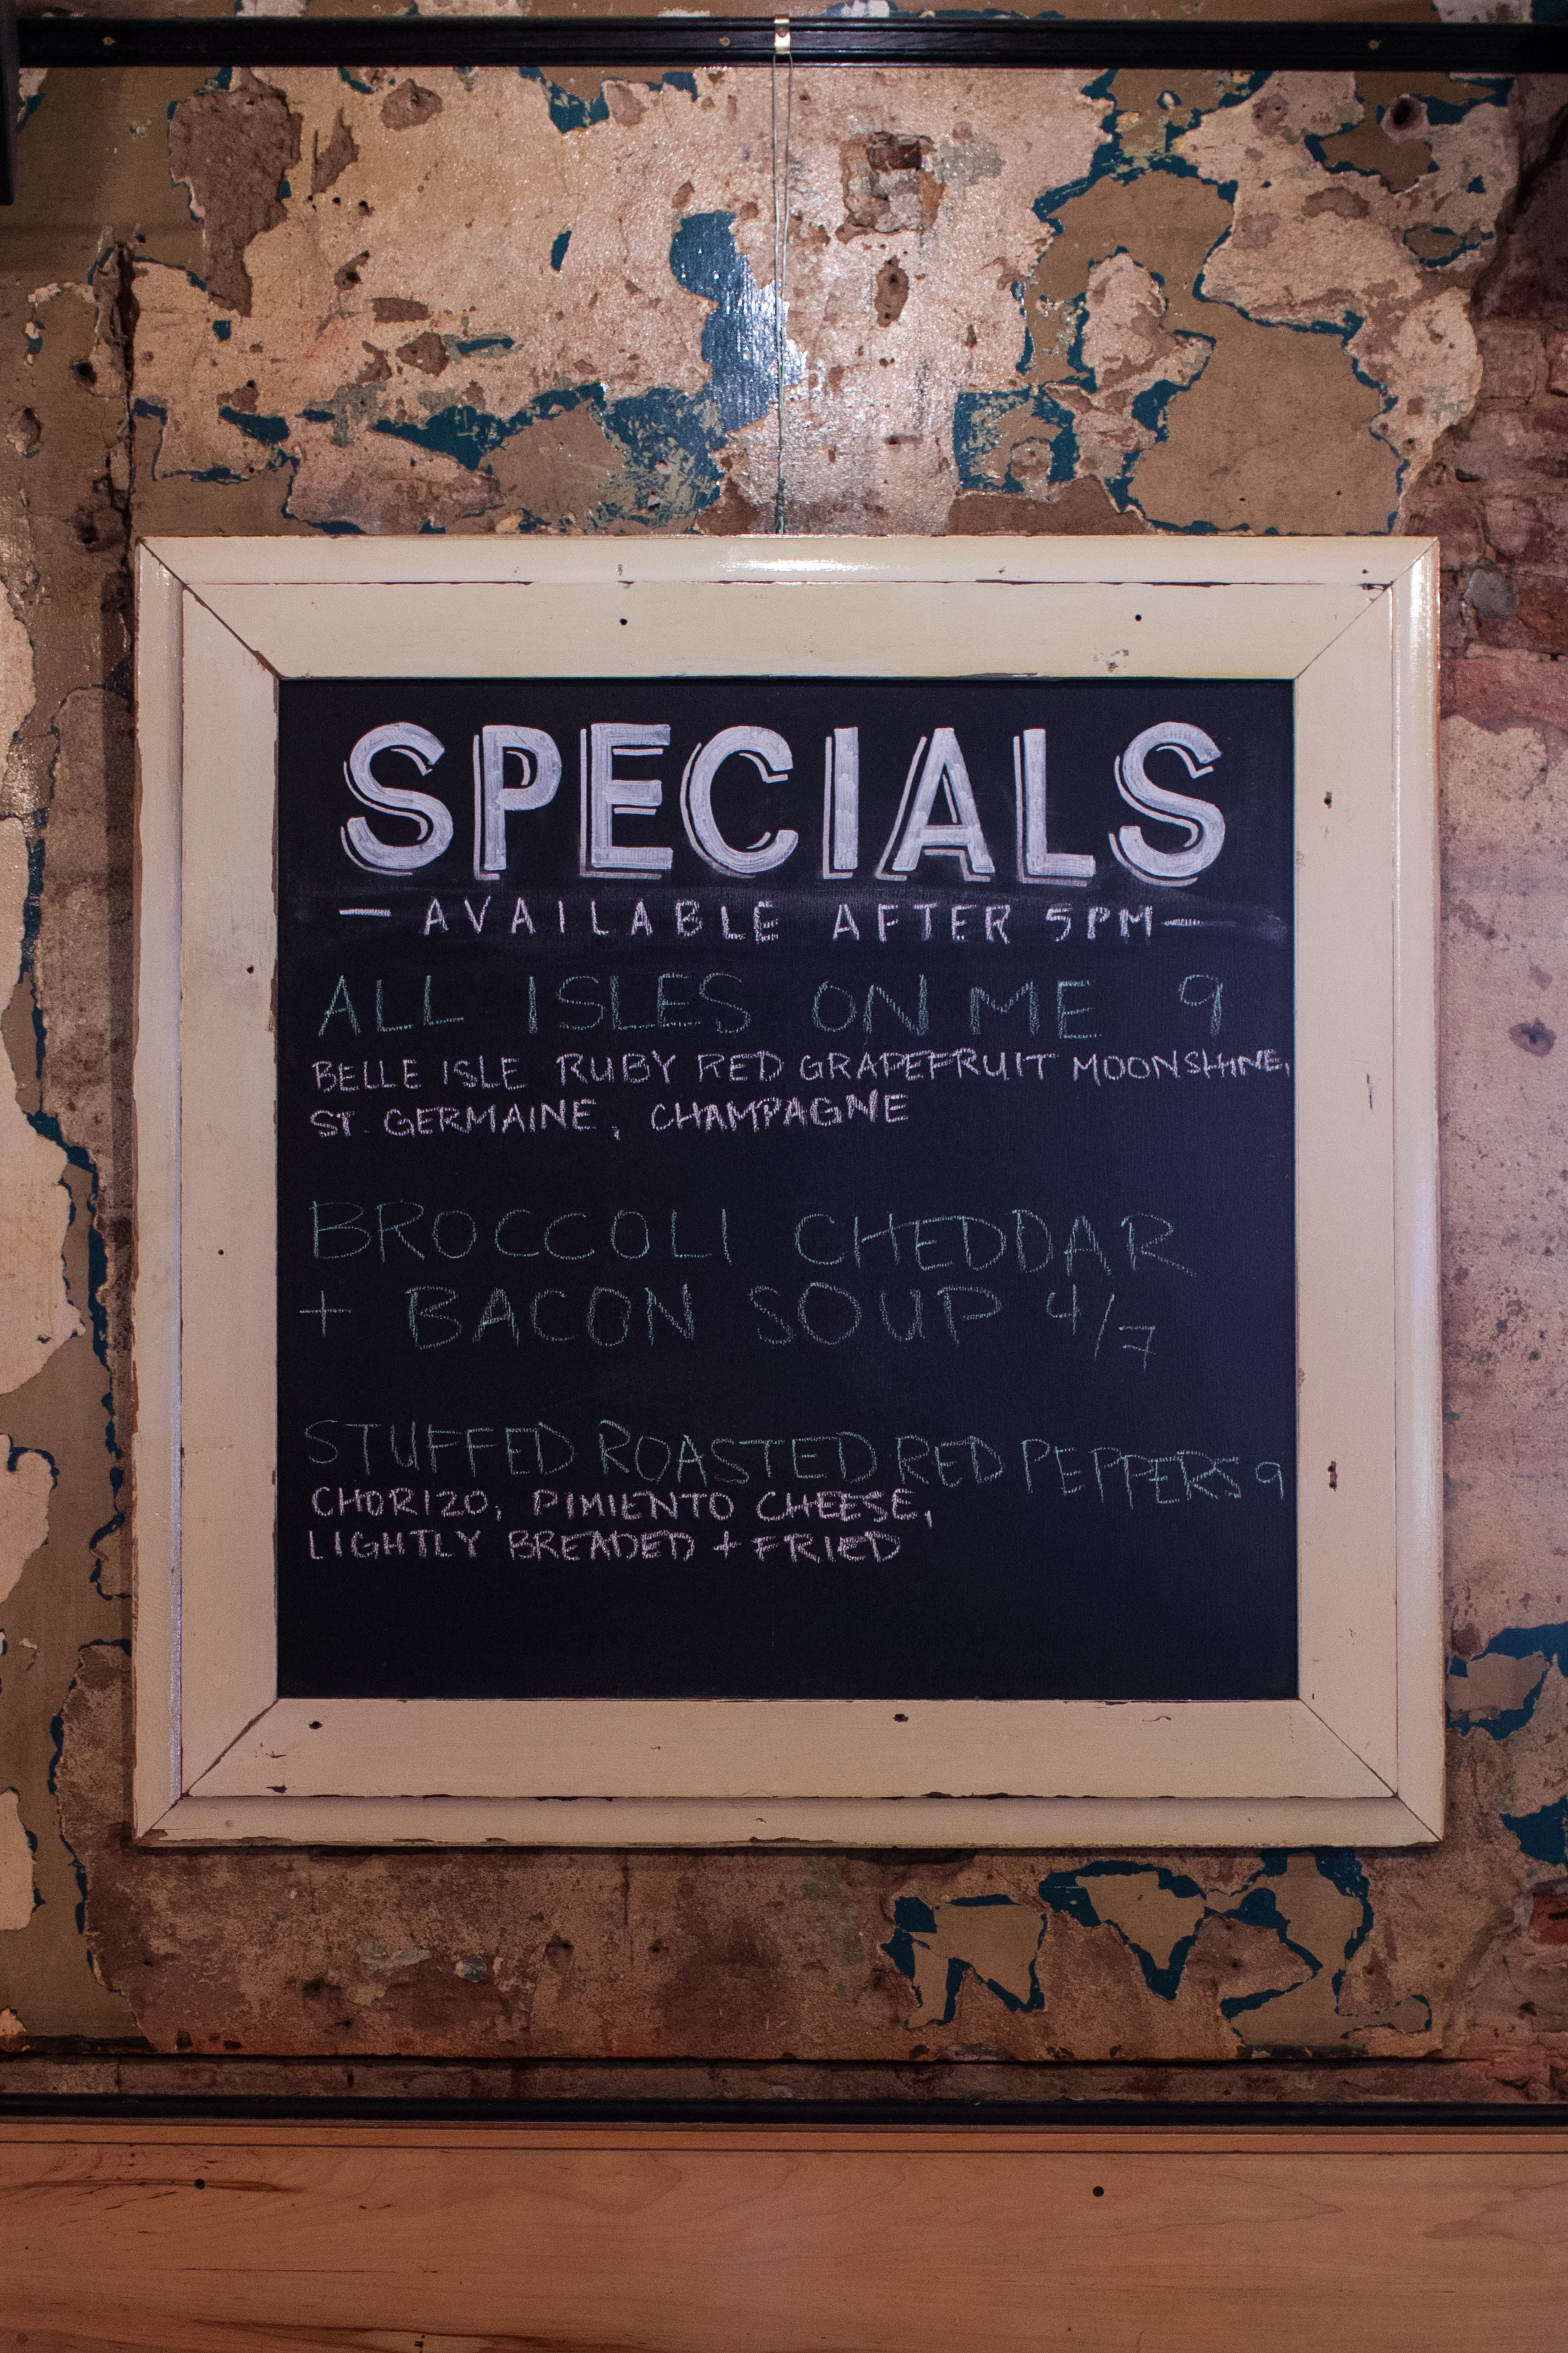 SPECIALS
— AVAILABLE AFTER 5PM —
ALL ISLES ON ME 9
BELLE ISLE RUBY RED GRAPEFRUIT MOONSHINE,
ST. GERMAINE, CHAMPAGNE
BROCCOLI CHEDDAR
+ BACON SOUP 4/7
STUFFED ROASTED RED PEPPERS 9
CHORIZO, PIMIENTO CHEESE,
LIGHTLY BREADED + FRIED